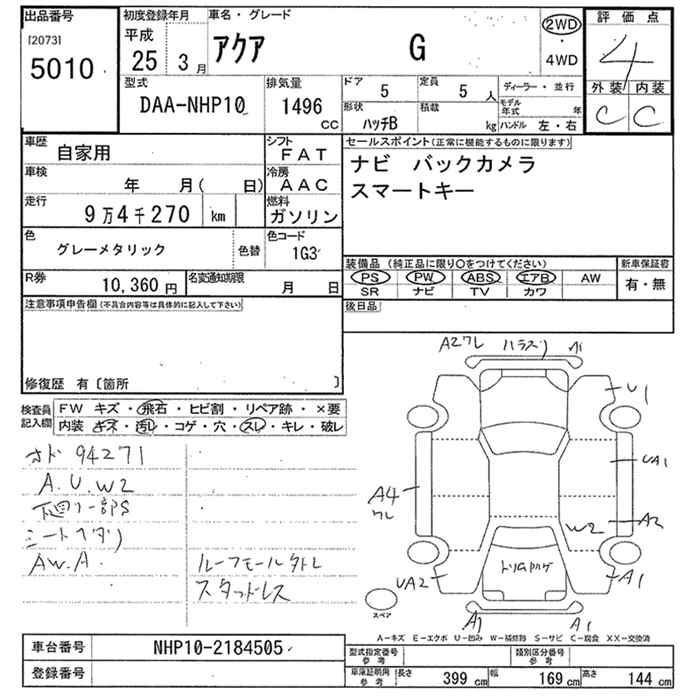 出品番号
[2073]
5010
初度登録年月
平成
25 3月
車名・グレード
アクア G
2WD
・
4WD
評価点
4
外装 内装
C C
型式
DAA-NHP10
排気量
1496
CC
ドア 5
定員 5人
形状 ハッチB
積載 kg
ディーラー・並行
モデル年式 年
ハンドル 左・右
車歴 自家用
シフト FAT
車検 年 月( 日)
冷房 AAC
走行 9万4千270 km
燃料 ガソリン
色 グレーメタリック 色替
色コード 1G3
R券 10,360円
名変通知期限 月 日
セールスポイント(正常に機能するものに限ります)
ナビ バックカメラ
スマートキー
装備品 (純正品に限り○をつけてください)
新車保証書
PS PW ABS エアB AW
SR ナビ TV カワ
有・無
後日品
注意事項申告欄(不具合内容等は具体的に記入して下さい)
修復歴 有〔箇所 〕
検査員記入欄
FW キズ・飛石・ヒビ割・リペア跡・×要
内装 キズ・汚れ・コゲ・穴・スレ・キレ・破レ
94271
A.U.W2
下廻り一部S
シートヘタリ
AW.A
ルーフモール
スタッドレス
A2ワレ
A1
U1
UA1
A4
ワレ
W2
A2
UA2
A1
A1
A1
スペア
A-キズ E-エクボ U-凹み W-補修跡 S-サビ C-腐食 XX-交換済
車台番号 NHP10-2184505
登録番号
型式指定番号 参考
類別区分番号 参考
車庫証明用 参考
長さ 399 cm
幅 169 cm
高さ 144 cm